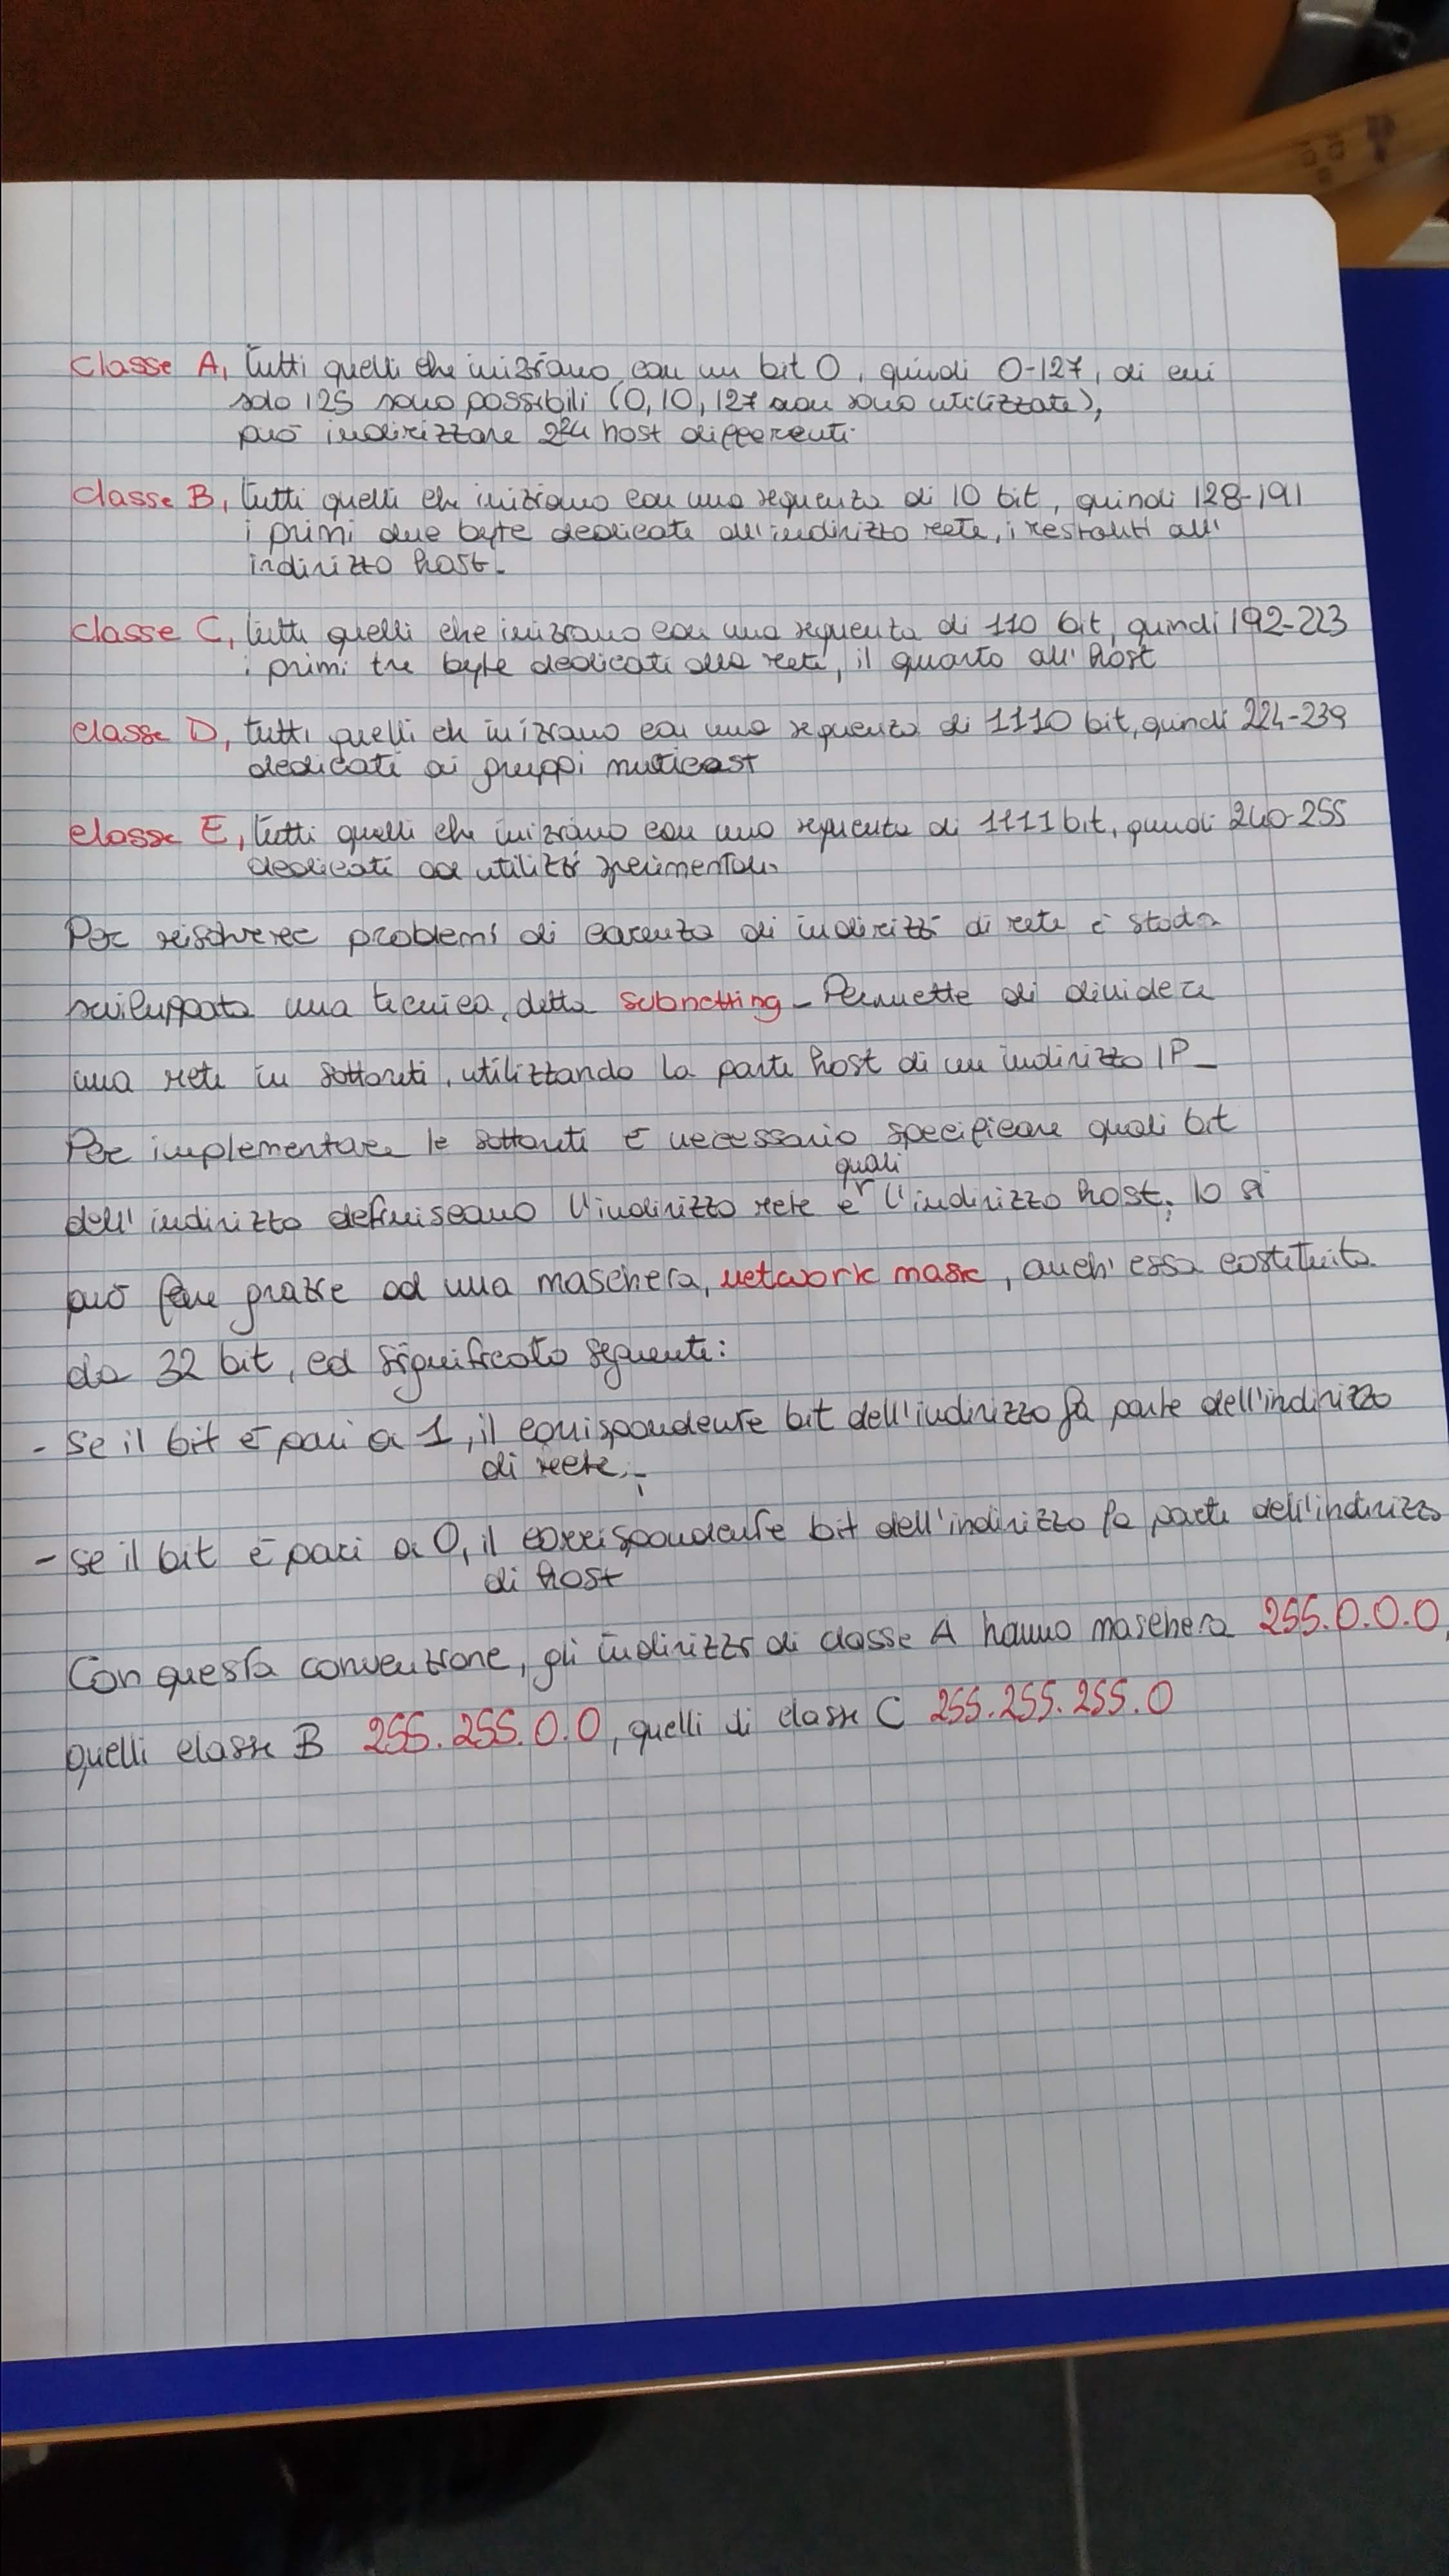 Classe A, tutti quelli che iniziano con un bit 0, quindi 0-127, di cui
solo 125 sono possibili (0, 10, 127 non sono utilizzate),
può indirizzare 2²⁴ host differenti.
Classe B, tutti quelli che iniziano con una sequenza di 10 bit, quindi 128-191
i primi due byte dedicate all'indirizzo rete, i restanti all'
indirizzo host.
Classe C, tutti quelli che iniziano con una sequenza di 110 bit, quindi 192-223
i primi tre byte dedicati alla rete, il quarto all'host
classe D, tutti quelli che iniziano con una sequenza di 1110 bit, quindi 224-239
dedicati ai gruppi multicast
classe E, tutti quelli che iniziano con una sequenza di 1111 bit, quindi 240-255
dedicati ad utilizzi sperimentali.
Per risolvere problemi di carenza di indirizzi di rete è stada
sviluppata una tecnica, detta subnetting - Permette di dividere
una rete in sottoreti, utilizzando la parte host di un indirizzo IP -
Per implementare le sottoreti è necessario specificare quali bit
quali
dell'indirizzo definiscano l'indirizzo rete e l'indirizzo host; lo si
può fare grazie ad una maschera, network mask, anch'essa costituita
da 32 bit, ed significato seguente:
- se il bit è pari a 1, il corrispondente bit dell'indirizzo fa parte dell'indirizzo
di rete;
- se il bit è pari a 0, il corrispondente bit dell'indirizzo fa parte dell'indirizzo
di host
Con questa convenzione, gli indirizzi di classe A hanno maschera 255.0.0.0,
quelli classe B 255.255.0.0, quelli di classe C 255.255.255.0